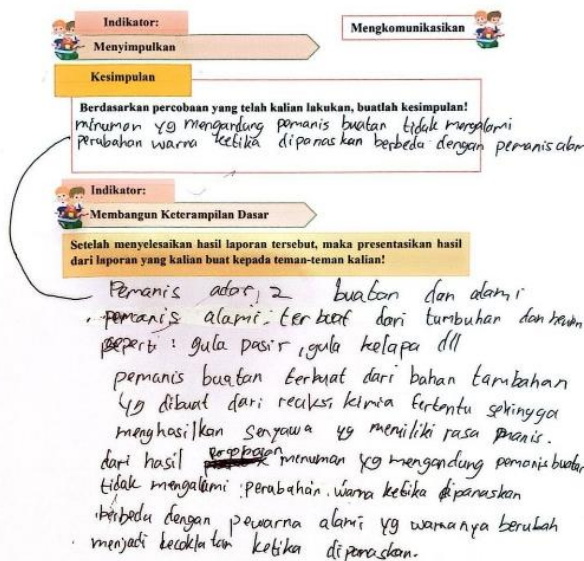 Indikator:
Menyimpulkan
Mengkomunikasikan
Kesimpulan
Berdasarkan percobaan yang telah kalian lakukan, buatlah kesimpulan!
minuman yg mengandung pemanis buatan tidak mengalami
perubahan warna ketika dipanaskan berbeda dengan pemanis alam
Indikator:
Membangun Keterampilan Dasar
Setelah menyelesaikan hasil laporan tersebut, maka presentasikan hasil
dari laporan yang kalian buat kepada teman-teman kalian!
Pemanis ada 2 buatan dan alami
pemanis alami terbuat dari tumbuhan dan hewan
seperti : gula pasir, gula kelapa dll
pemanis buatan terbuat dari bahan tambahan
yg dibuat dari reaksi kimia tertentu sehingga
menghasilkan senyawa yg memiliki rasa manis.
dari hasil minuman yg mengandung pemanis buatan
tidak mengalami perubahan warna ketika dipanaskan
berbeda dengan pewarna alami yg warnanya berubah
menjadi kecoklatan ketika dipanaskan.